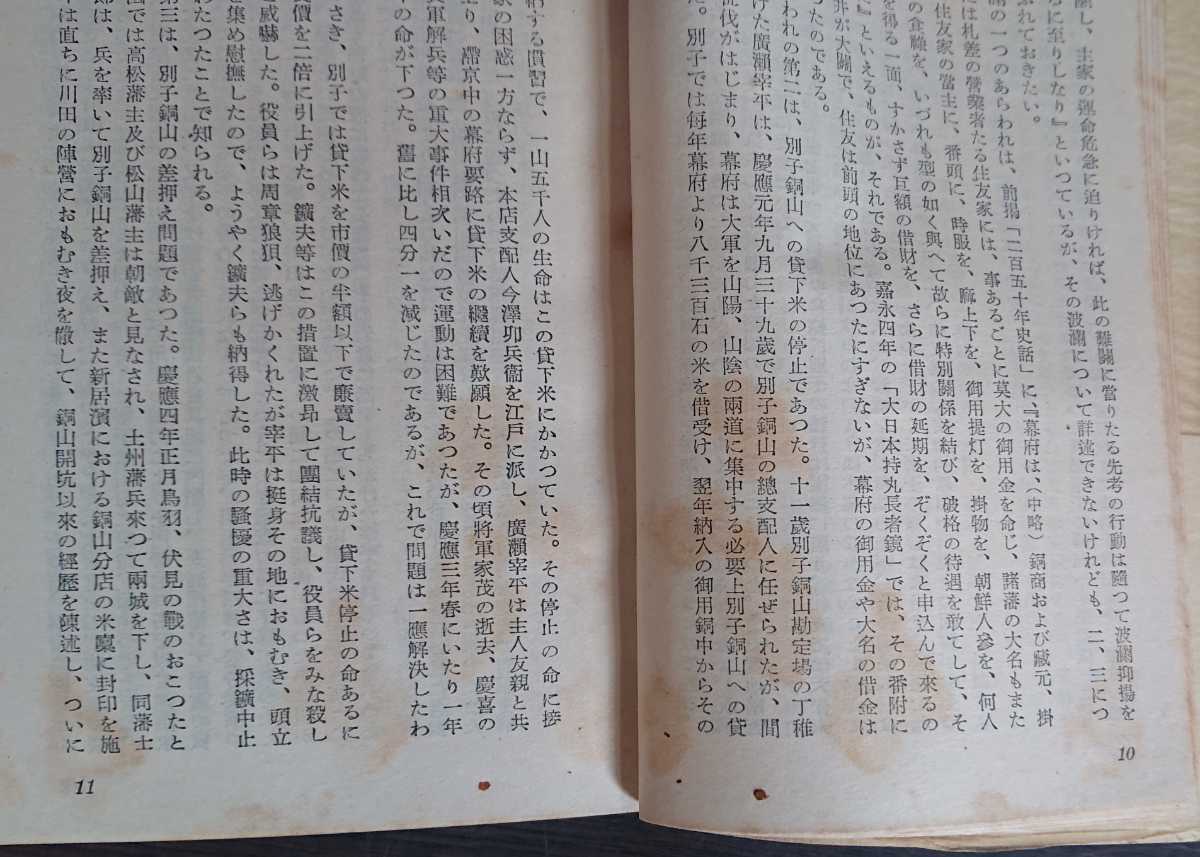 關し、主家の運命危急に迫りければ、此の難關に當りたる先考の行動は隨つて波瀾抑揚を
に至りしなり』といつているが、その波瀾について詳述できないけれども、二、三につ
ふれておきたい。
瀾の一つのあらわれは、前揭「二百五十年史話」に、『幕府は、(中略) 銅商および藏元、掛
には札差の營業者たる住友家には、事あるごとに莫大の御用金を命じ、諸藩の大名もまた
住友家の當主に、番頭に、時服を、麻上下を、御用提灯を、掛物を、朝鮮人參を、何人
の食祿を、いづれも型の如く與へて故らに特別關係を結び、破格の待遇を敢てして、そ
を得る一面、すかさず巨額の借財を、さらに借財の延期を、ぞくぞくと申込んで來るの
』といえるものが、それである。嘉永四年の「大日本持丸長者鏡」では、その番附に
井が大關で、住友は前頭の地位にあつたにすぎないが、幕府の御用金や大名の借金は
つたのである。
われの第二は、別子銅山への貸下米の停止であつた。十一歲別子銅山勘定場の丁稚
けた廣瀨宰平は、慶應元年九月三十九歲で別子銅山の總支配人に任ぜられたが、間
征伐がはじまり、幕府は大軍を山陽、山陰の兩道に集中する必要上別子銅山への貸
た。別子では每年幕府より八千三百石の米を借受け、翌年納入の御用銅中からその
10
給する慣習で、一山五千人の生命はこの貸下米にかかつていた。その停止の命に接
家の困惑一方ならず、本店支配人今澤卯兵衞を江戶に派し、廣瀨宰平は主人友親と共
上り、滯京中の幕府要路に貸下米の繼續を歎願した。その頃將軍家茂の逝去、慶喜の
軍解兵等の重大事件相次いだので運動は困難であつたが、慶應三年春にいたり一年
の命が下つた。舊に比し四分一を減じたのであるが、これで問題は一應解決したわ
さき、別子では貸下米を市價の半額以下で廉賣していたが、貸下米停止の命あるに
賣價を二倍に引上げた。鑛夫等はこの措置に激昂して團結抗議し、役員らをみな殺し
と威嚇した。役員らは周章狼狽、逃げかくれたが宰平は挺身その地におもむき、頭立
を集め慰撫したので、ようやく鑛夫らも納得した。此時の騷擾の重大さは、採鑛中止
わたつたことで知られる。
第三は、別子銅山の差押え問題であつた。慶應四年正月鳥羽、伏見の戰のおこつたと
國では高松藩主及び松山藩主は朝敵と見なされ、土州藩兵來つて兩城を下し、同藩士
郞は、兵を率いて別子銅山を差押え、また新居濱における銅山分店の米廩に封印を施
平は直ちに川田の陣營におもむき夜を徹して、銅山開坑以來の經歷を陳述し、ついに
11